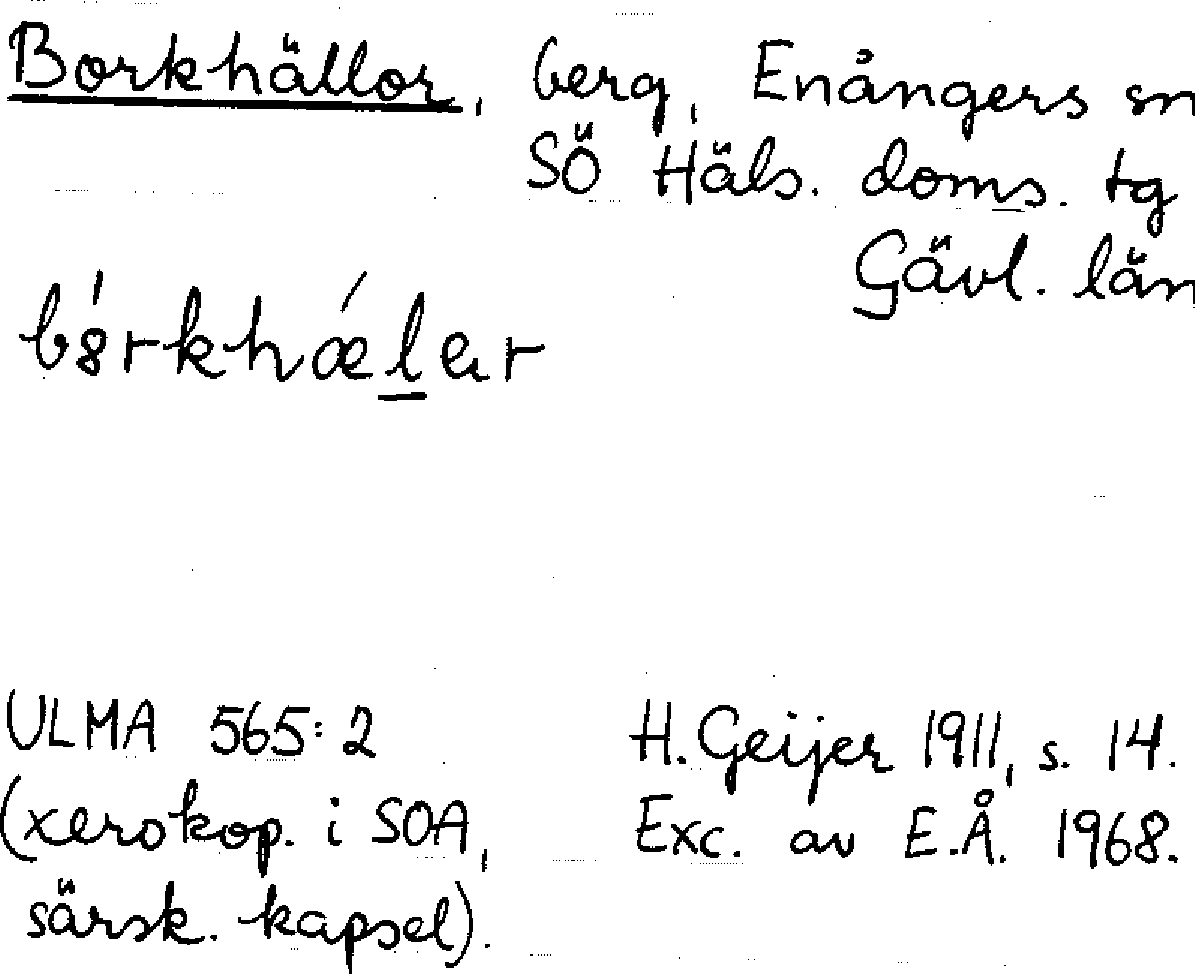 Borkhällor, berg, Enångers sn
SÖ Häls. doms. tg
Gävl. län
ULMA 565:2
(xerokop. i SOA,
särsk. kapsel).
H. Geijer 1911, s. 14.
Exc. av E.Å. 1968.